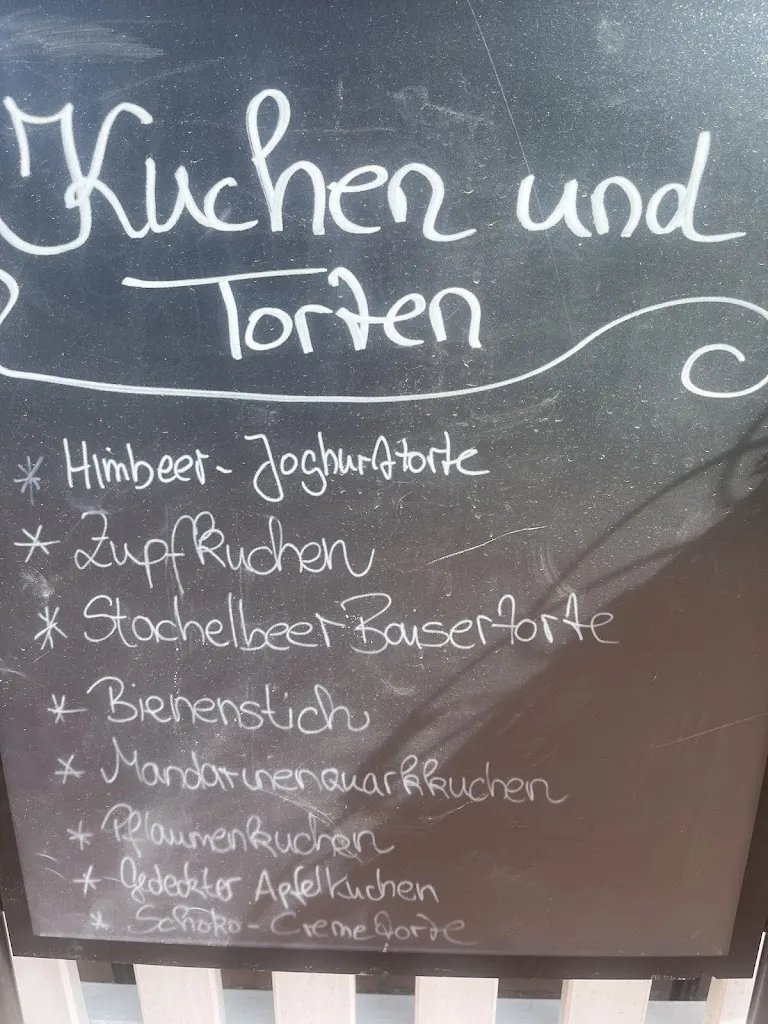 Kuchen und
Torten
* Himbeer-Joghurttorte
* Zupfkuchen
* Stachelbeer Baisertorte
* Bienenstich
* Mandarinenquarkkuchen
* Pflaumenkuchen
* Gedeckter Apfelkuchen
* Schoko-Cremetorte